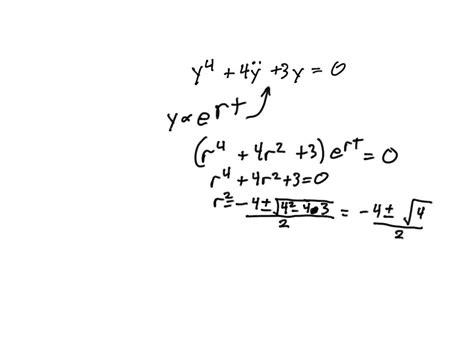 y⁴ + 4ÿ + 3y = 0
y ∝ e^{rt}
(r⁴ + 4r² + 3) e^{rt} = 0
r⁴ + 4r² + 3 = 0
r² = (-4 ± √(4² - 4•3))/2 = (-4 ± √4)/2